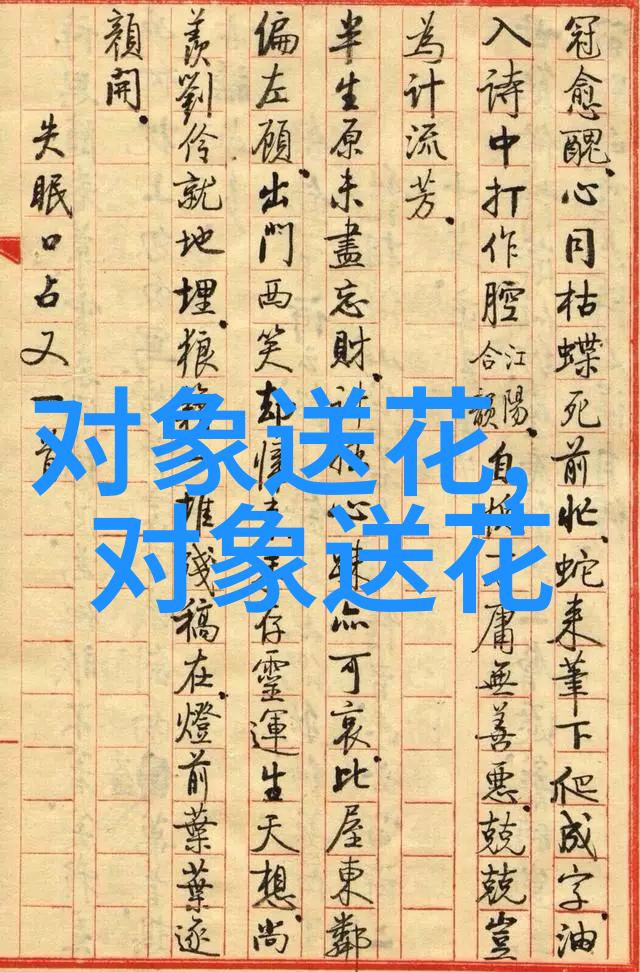 冠愈醜。心同枯蝶死前忙。蛇来筆下爬成字。油
入詩中打作腔 江陽合韻。自 庸無善惡。兢兢豈
為計流芳。
半生原未盡忘財。計 心疎亦可哀。比屋東鄰
偏左顧。出門西笑却懷 存靈運生天想。尚
羨劉伶就地埋。狼 堆殘稿在。燈前葉葉逐
顏開。
失眠口占又一首
对象送花，
对象送花